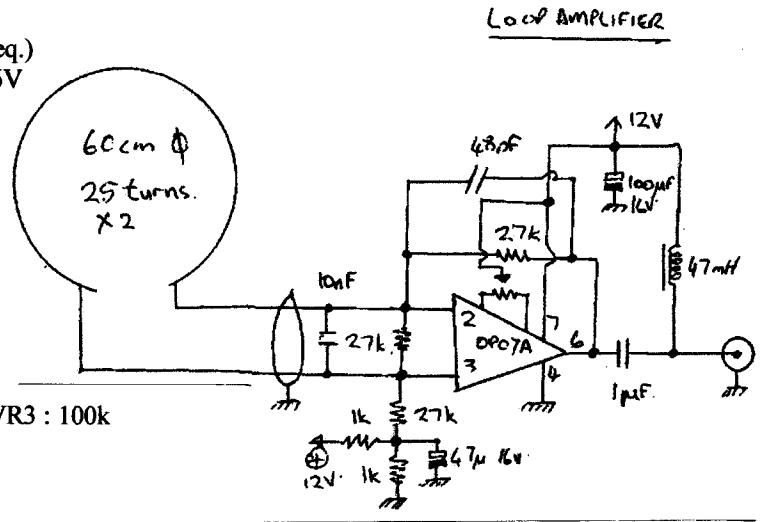 LOOP AMPLIFIER
eq.)
5V
60cm ϕ
25 turns.
x 2
12V
48pF
100µF
16V.
27k
47mH
10nF
2
7
27k
OP07A
6
3
4
1µF.
VR3 : 100k
1k
27k
+
12V.
1k
47µ 16v.